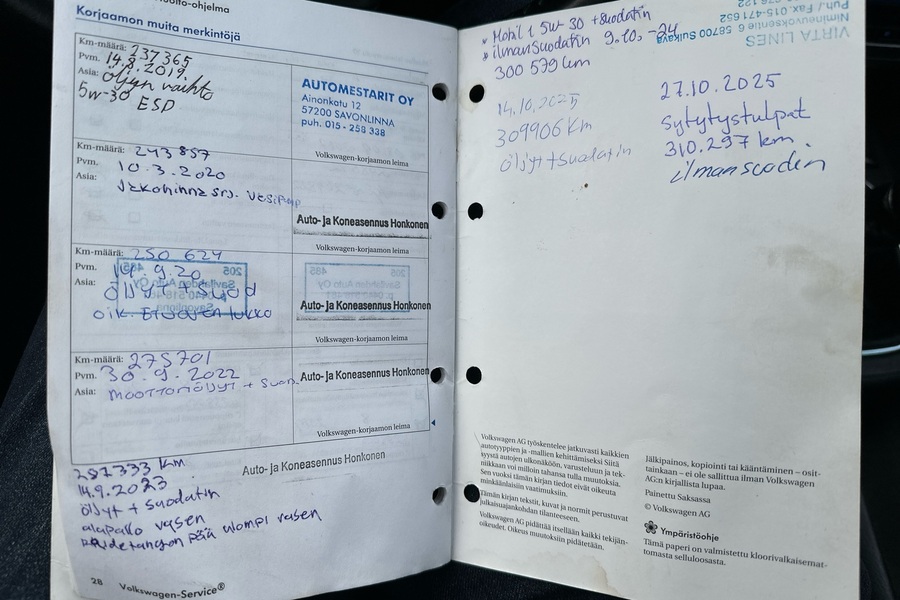 huolto-ohjelma
Korjaamon muita merkintöjä
Km-määrä: 237365
Pvm. 14.8.2019
Asia: öljyn vaihto
5w-30 ESP
AUTOMESTARIT OY
Ainonkatu 12
57200 SAVONLINNA
puh. 015 - 258 338
Volkswagen-korjaamon leima
Km-määrä: 243857
Pvm. 10.3.2020
Asia: Jakohihna srj. vesipop
Auto- ja Koneasennus Honkonen
Volkswagen-korjaamon leima
Km-määrä: 250 624
Pvm. 19.9.20
Asia: öljyt + suod
oik. Etuoven lukko
Auto- ja Koneasennus Honkonen
Volkswagen-korjaamon leima
Km-määrä: 275701
Pvm. 30.9.2022
Asia: moottoriöljyt + suod.
Auto- ja Koneasennus Honkonen
Volkswagen-korjaamon leima
Auto- ja Koneasennus Honkonen
287333 km
14.9.2023
öljyt + suodatin
alapallo vasen
pää ulompi vasen
28 Volkswagen-Service®
Mobil 1 5w-30 + suodatin
ilmansuodatin 9.10.-24
300 579 km
VIRTA LINES
Niminauvoksentie 6 58700 Sulkava
Puh./ Fax. 015-471 652
14.10.2025
309906 Km
Öljyt + Suodatin
27.10.2025
Sytytystulpat
310.297 km.
ilmansuoden
Volkswagen AG työskentelee jatkuvasti kaikkien
autotyyppien ja -mallien kehittämiseksi Siitä
syystä autojen ulkonäköön, varusteluun ja tek-
niikkaan voi milloin tahansa tulla muutoksia.
Sen vuoksi tämän kirjan tiedot eivät oikeuta
minkäänlaisiin vaatimuksiin.
Tämän kirjan tekstit, kuvat ja normit perustuvat
julkaisuajankohdan tilanteeseen.
Volkswagen AG pidättää itsellään kaikki tekijän-
oikeudet. Oikeus muutoksiin pidätetään.
Jälkipainos, kopiointi tai kääntäminen – osit-
tainkaan – ei ole sallittua ilman Volkswagen
AG:n kirjallista lupaa.
Painettu Saksassa
© Volkswagen AG
Ympäristöohje
Tämä paperi on valmistettu kloorivalkaisemat-
tomasta selluloosasta.